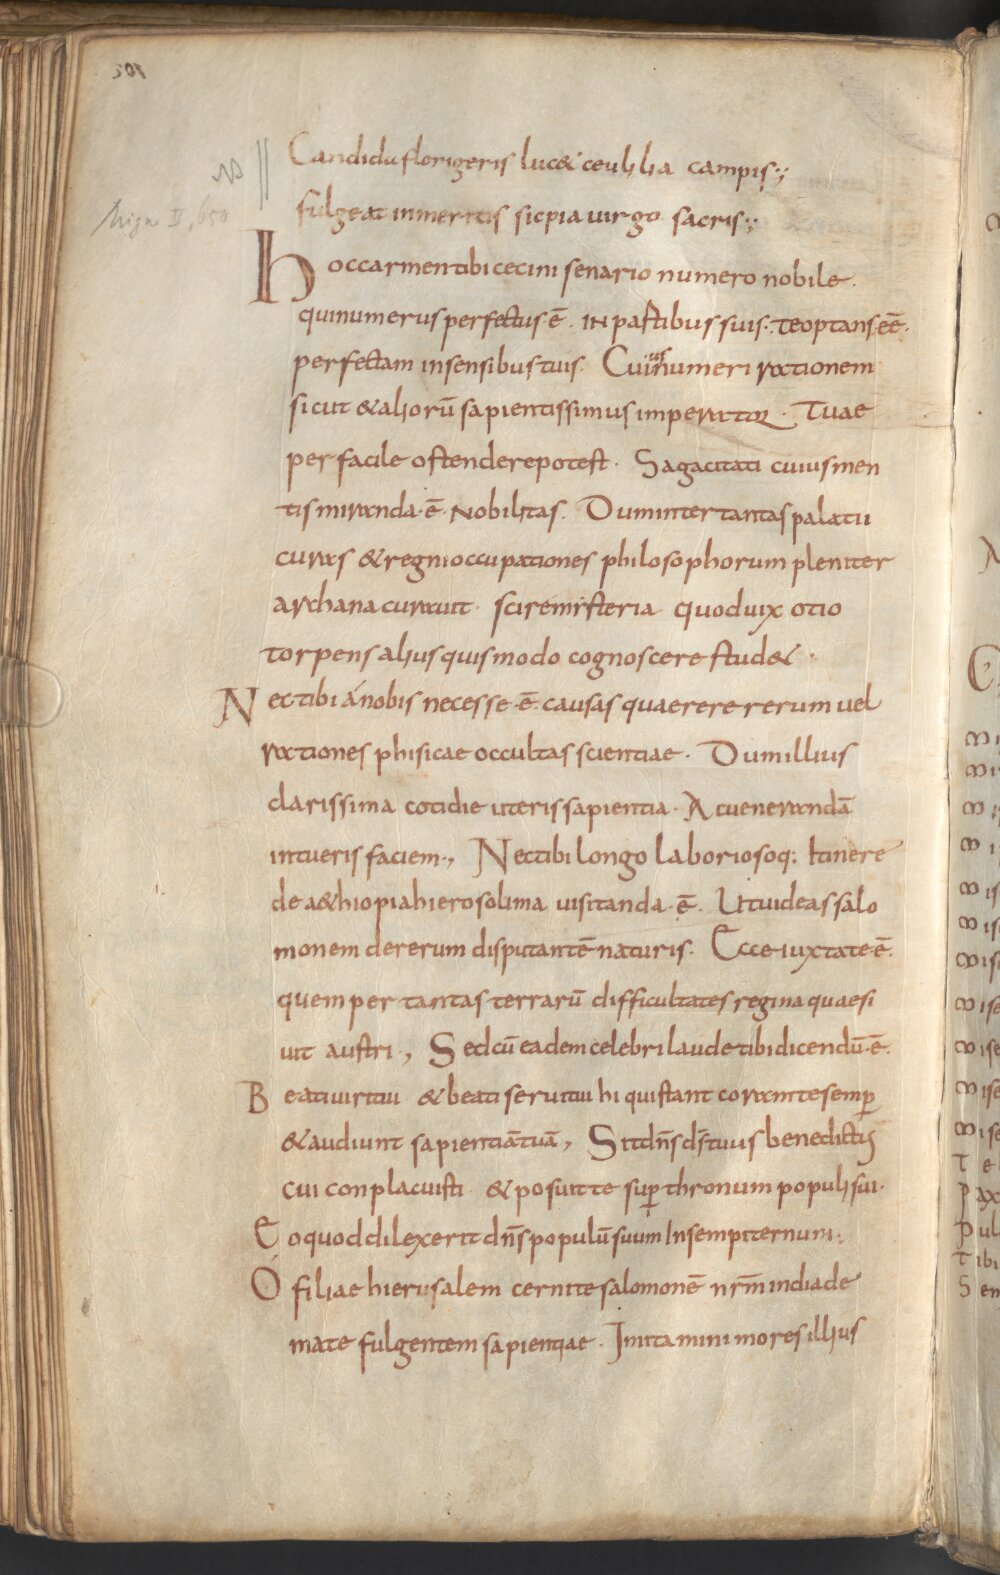 301
Candidu florigeris lucet ceu lilia campis
NB
Migne II, 650
fulgeat inmeritis sic pia virgo sacris
Hoc carmen tibi cecini senario numero nobile.
qui numerus perfectus·ē· in partibus suis· te optans eē·
perfectam in sensibus tuis. Cuius numeri rationem
sicut & aliorū sapientissimus imperator· Tuae
perfacile ostendere potest· Sagacitati cuius men
tis miranda·ē·nobilitas. Dum inter tantas palatii
curas & regni occupationes philosophorum pleniter
archana curauit· scire misteria quod uix otio
torpens alius quis modo cognoscere stud&·
Nec tibi á nobis necesse·ē·causas quaerere rerum uel
rationes phisicae occultas scientiae· Dum illius
clarissima cotidie uteris sapientia· Atuenerandā
intueris faciem·, Nec tibi longo laboriosoq: Itinere
de a&hiopia hierosolima uisitanda·ē· Ut uideas salo
monem de rerum disputantē naturis. Ecce iuxta te·ē·
quem per tantas terrarū difficultates regina quaesi
uit austri, Sed cū eadem celebri laude tibi dicendū·ē·
Beati uiri tui & beati serui tui hi qui stant coram te semp̄
& audiunt sapientiā tuā, Sit dn̄s ds̄ tuus benedictus
cui conplacuisti & posuit te sup̄ thronum populi sui·
Eo quod dilexerit dn̄s populū suum In sempiternum·
Ó filiae hierusalem cernite salomonē nr̄m in diade
mate fulgentem sapientiae· Imitamini mores illius